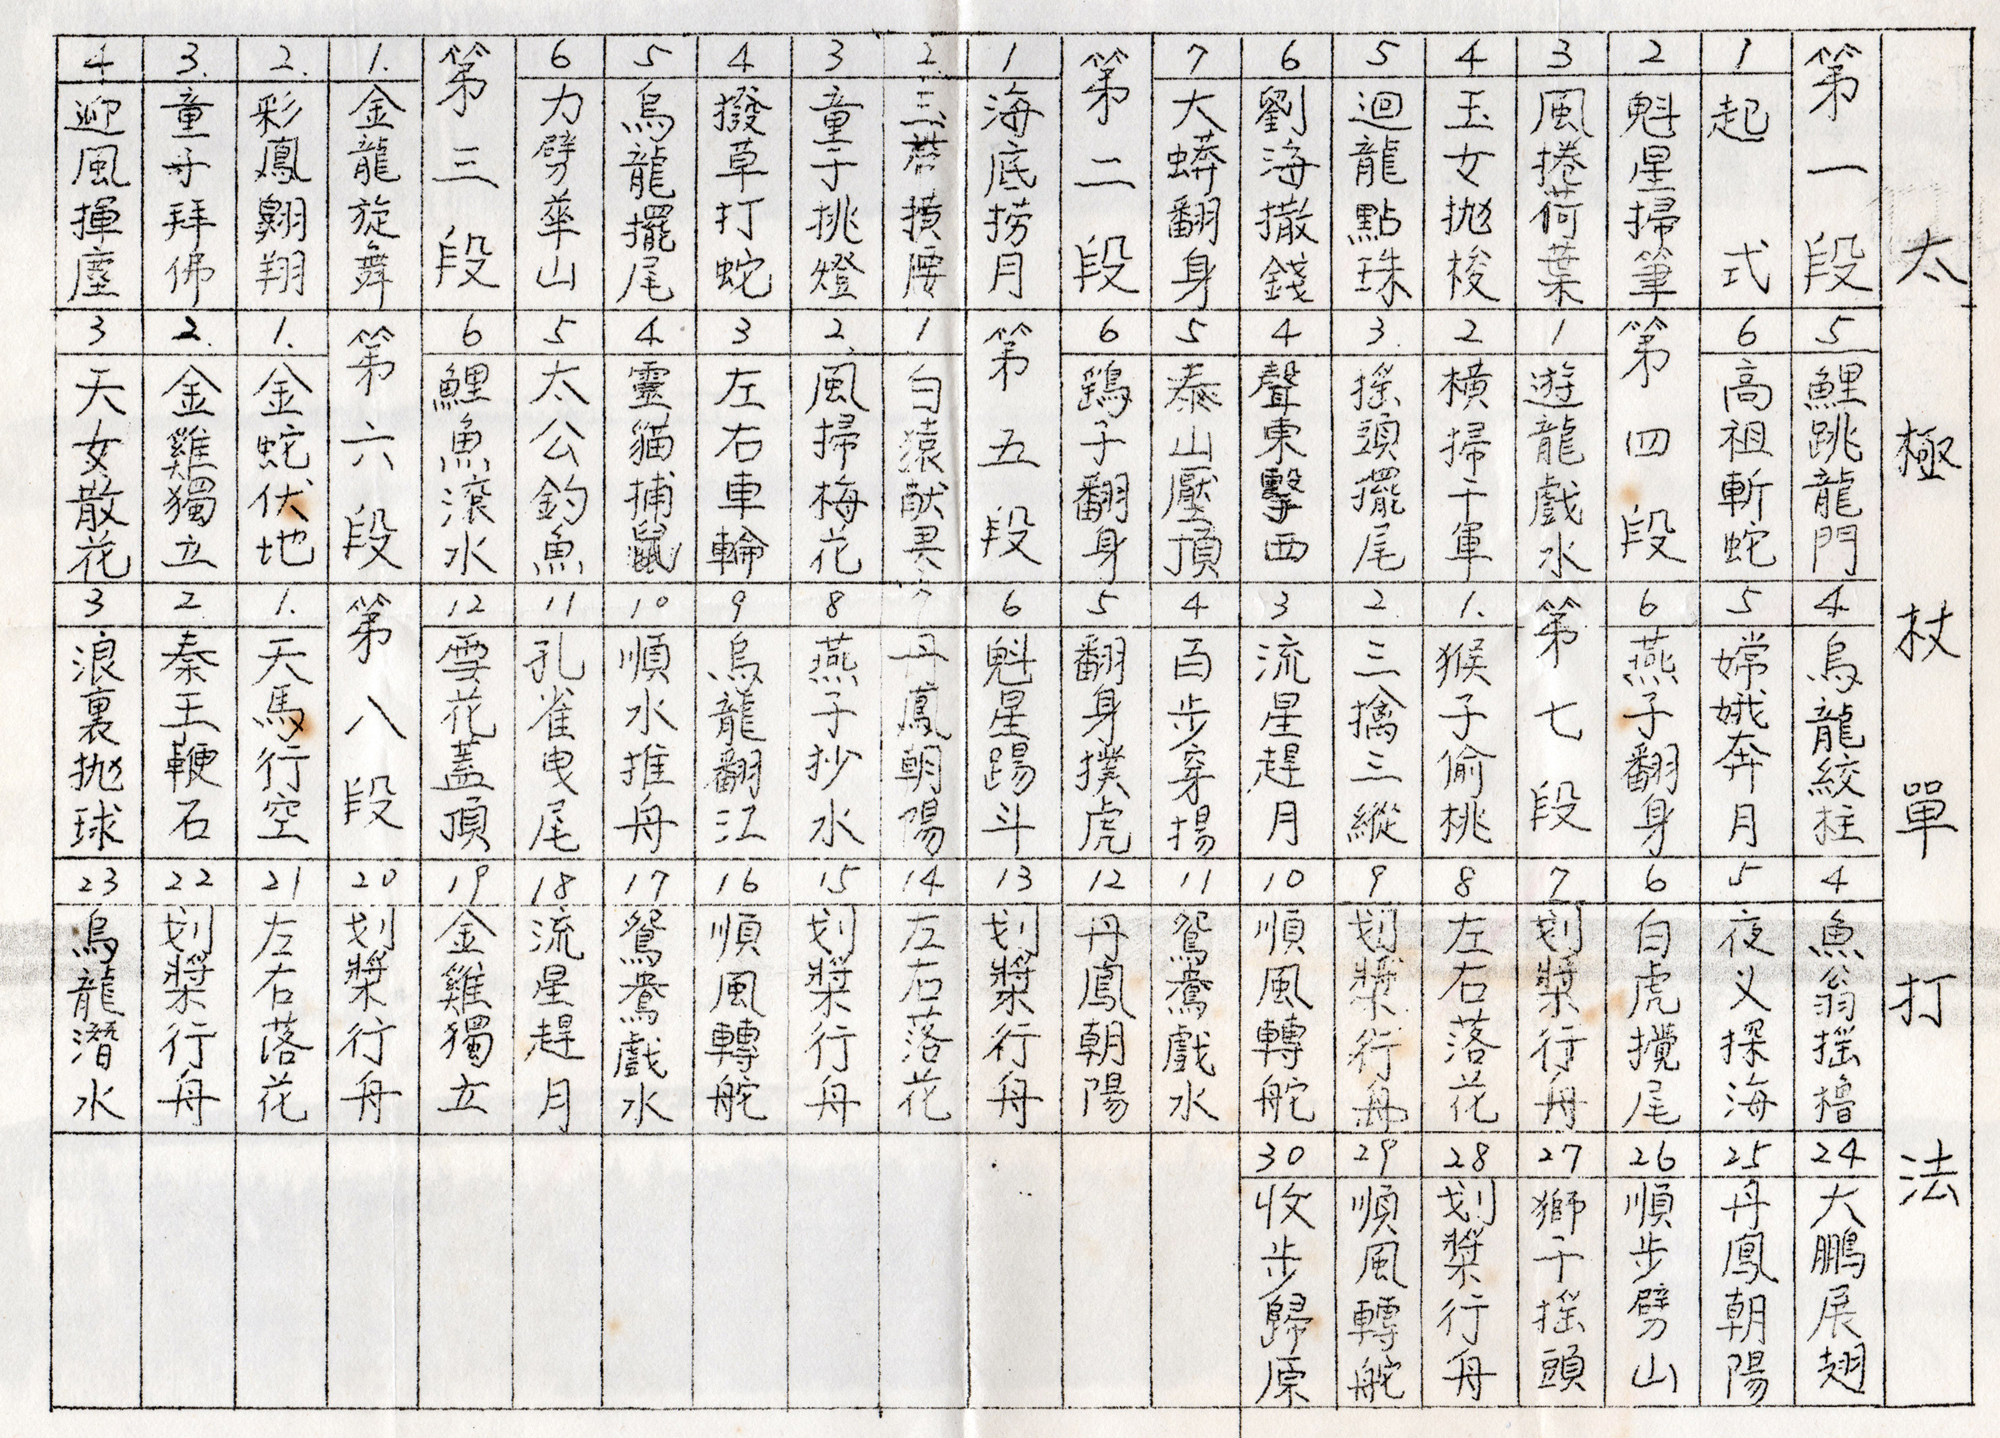 太極杖單打法
第一段
1 起式
2 魁星掃筆
3 風捲荷葉
4 玉女拋梭
5 迴龍點珠
6 劉海撒錢
7 大蟒翻身
第二段
1 海底撈月
2. 三帶横腰
3 童子挑燈
4 撥草打蛇
5 烏龍擺尾
6 力劈華山
第三段
1. 金龍旋舞
2. 彩鳳翱翔
3. 童子拜佛
4 迎風揮塵
5 鯉跳龍門
6 高祖斬蛇
第四段
1 遊龍戲水
2 橫掃千軍
3. 搖頭擺尾
4 聲東擊西
5 泰山壓頂
6 鷄子翻身
第五段
1 白猿献果
2. 風掃梅花
3 左右車輪
4. 靈貓捕鼠
5 太公釣魚
6 鯉魚滾水
第六段
1. 金蛇伏地
2. 金雞獨立
3 天女散花
4. 烏龍絞柱
5 嫦娥奔月
6 燕子翻身
第七段
1. 猴子偷桃
2. 三擒三縱
3 流星趕月
4 百步穿揚
5 翻身撲虎
6 魁星踢斗
7 丹鳳朝陽
8 燕子抄水
9 烏龍翻江
10 順水推舟
11 孔雀曳尾
12 雪花蓋頂
第八段
1. 天馬行空
2 秦王鞭石
3 浪裏拋球
4 魚翁摇櫓
5 夜义探海
6 白虎攪尾
7 划槳行舟
8 左右落花
9 划槳行舟
10 順風轉舵
11 鴛鴦戲水
12 丹鳳朝陽
13 划槳行舟
14 左右落花
15 划槳行舟
16 順風轉舵
17 鴛鴦戲水
18 流星趕月
19 金雞獨立
20 划槳行舟
21 左右落花
22 划槳行舟
23 烏龍潛水
24 大鵬展翅
25 丹鳳朝陽
26 順步劈山
27 獅子摇頭
28 划槳行舟
29 順風轉舵
30 收步歸原